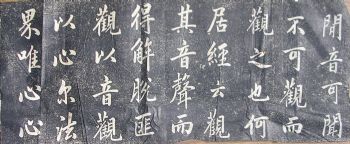 聞音可聞
不可觀而
觀之也何
居經云觀
其音聲而
得解脫匪
觀以音觀
以心尒法
界唯心心